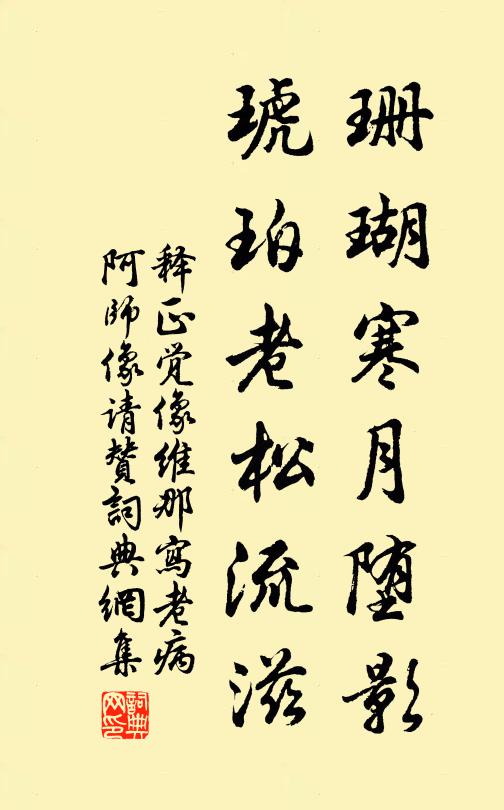 珊瑚寒月堕影
琥珀老松流滋
释正觉像维那寫老病
阿师像请赞詞典網集
詞典网印